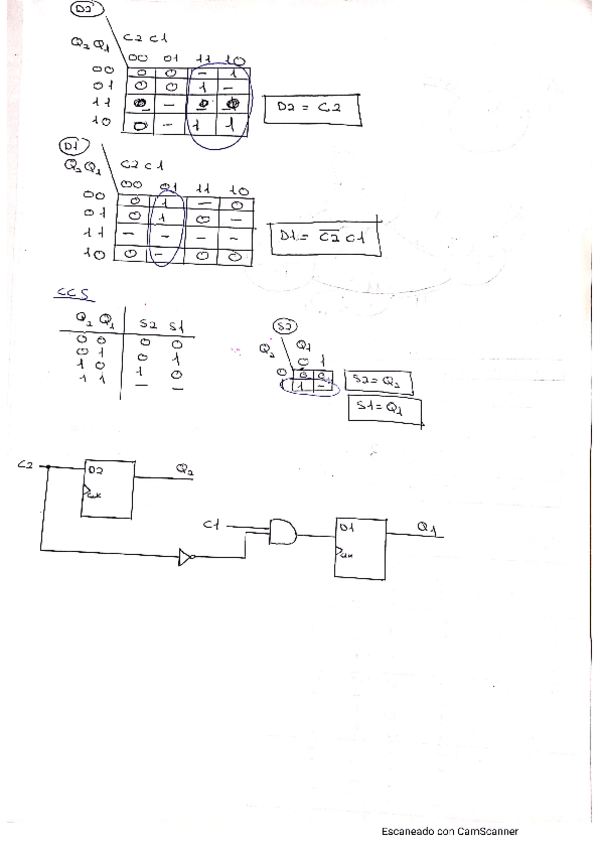 D2
Q2 Q1 C2 C1
00 01 11 10
00 0 0 - 1
01 0 0 1 -
11 -
10 0 - 1 1
D2 = C2
D1
Q2 Q1 C2 C1
00 01 11 10
00 0 1 - 0
01 0 1 0 -
11 - - - -
10 0 - 0 0
D1 = C̅2̅ C1
CCS
Q2 Q1 S2 S1
0 0 0 0
0 1 0 1
1 0 1 0
1 1 - -
S2
Q2 Q1
0 1
0 0 0
1 1 -
S2 = Q2
S1 = Q1
C2 D2 Q2
CLK
C1 D1 Q1
CLK
Escaneado con CamScanner